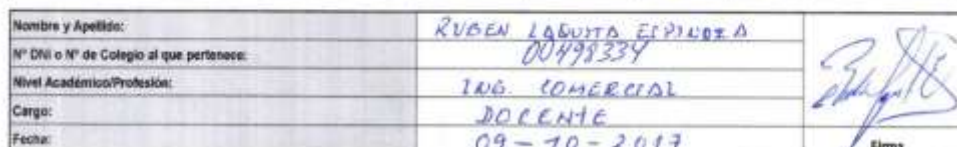 Nombre y Apellido: RUBEN LAQUITA ESPINOZA
Nº DNI o Nº de Colegio al que pertenece: 00498334
Nivel Académico/Profesión: ING. COMERCIAL
Cargo: DOCENTE
Fecha: 09 - 10 - 2017
Firma